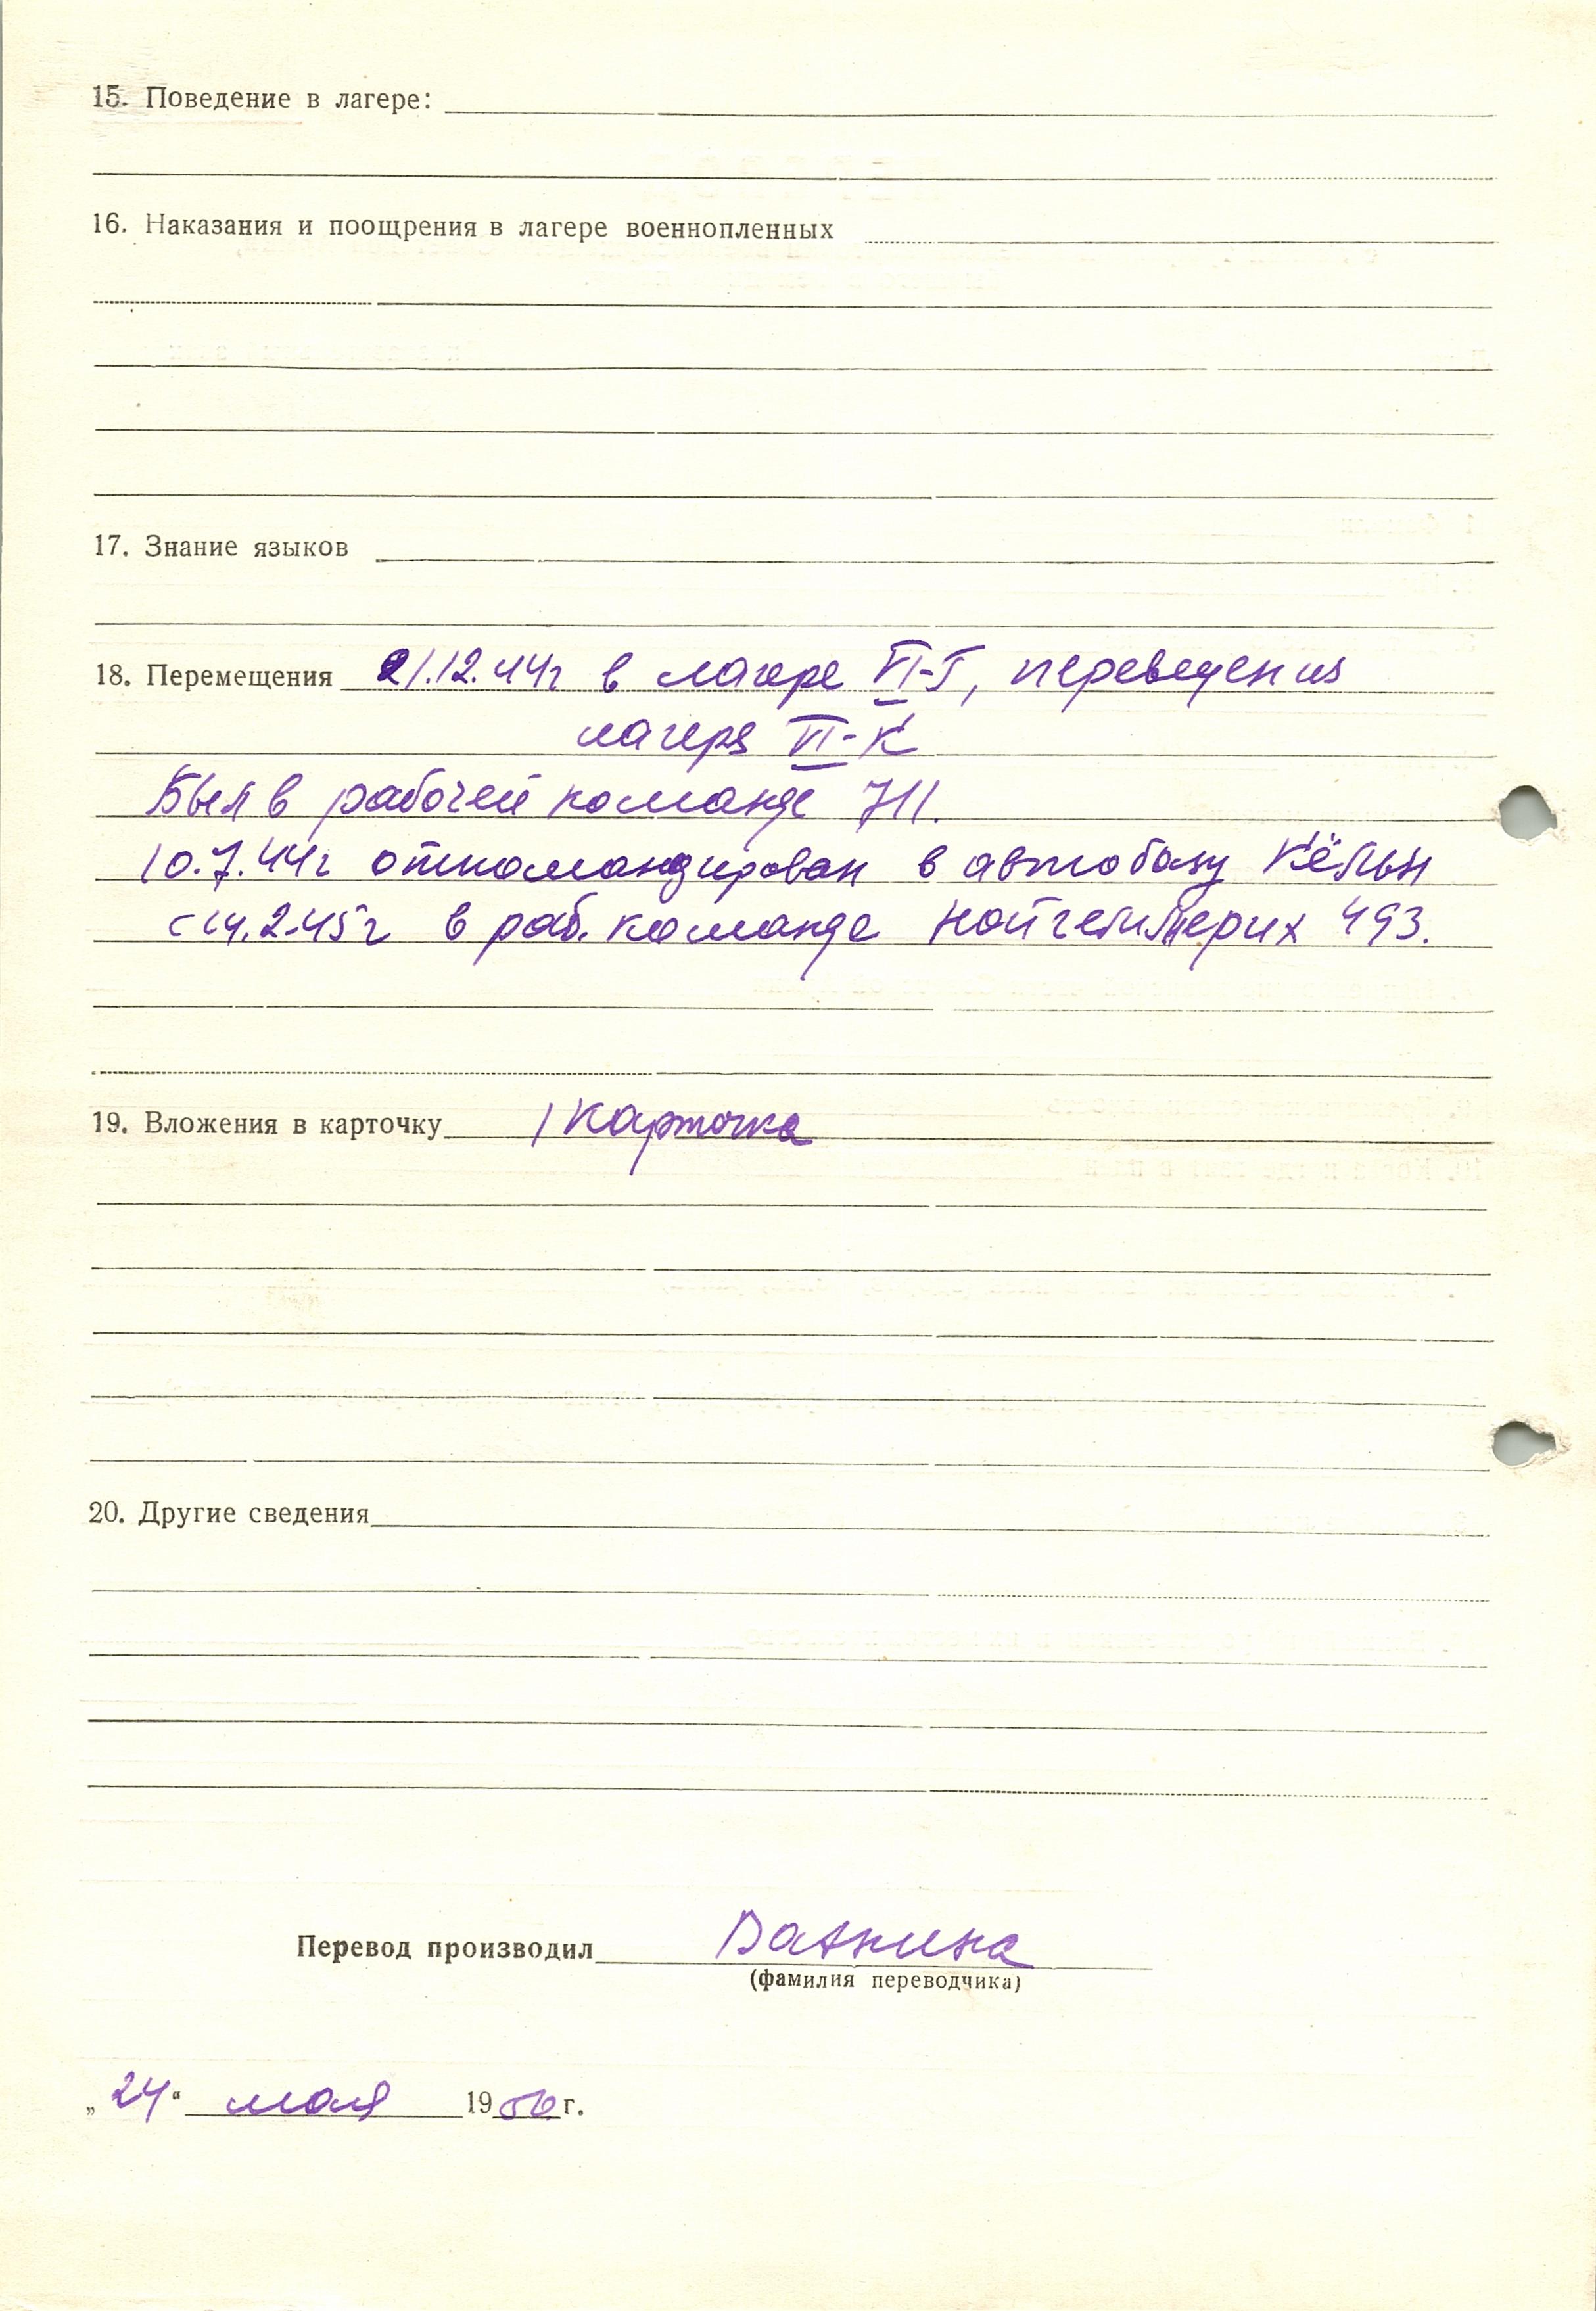 15. Поведение в лагере:
16. Наказания и поощрения в лагере военнопленных
17. Знание языков
18. Перемещения 21.12.44г в лагере VI-G, переведен из
лагеря VI-К
Был в рабочей команде 711.
10.7.44г откомандирован в автобазу Кёльн
с 14.2.45г в раб. команде 493.
19. Вложения в карточку 1 Карточка
20. Другие сведения
Перевод производил
(фамилия переводчика)
„24" мая 19 г.